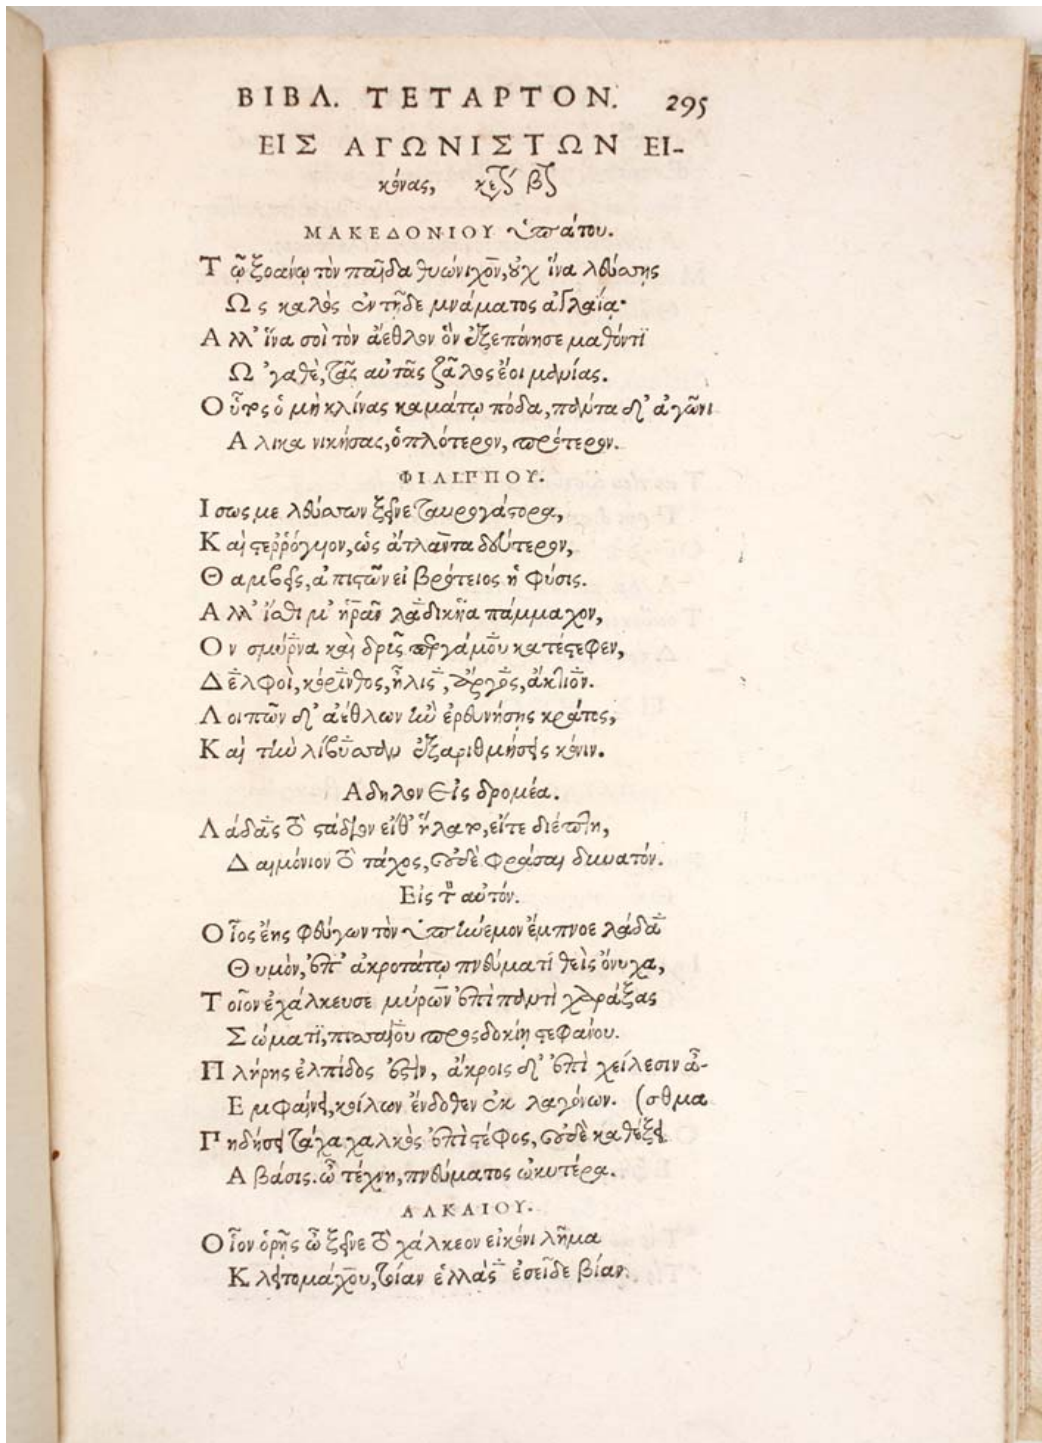 ΒΙΒΛ. ΤΕΤΑΡΤΟΝ. 295
ΕΙΣ ΑΓΩΝΙΣΤΩΝ ΕΙ-
κόνας,
ΜΑΚΕΔΟΝΙΟΥ ὑπάτου.
Τῷ ξοάνῳ τὸν παῖδα θυώνιχον, οὐχ ἵνα λεύσσης
Ως καλὸς ἐν τῇδε μνάματος ἀγλαΐᾳ·
Αλλ' ἵνα σοὶ τὸν ἄεθλον ὃν ἐξεπόνησε μαθόντι
Ω 'γαθὲ, τᾶς αὐτᾶς ζᾶλος ἔοι μανίας.
Οὗτος ὁ μὴ κλίνας καμάτῳ πόδα, πάντα δ' ἀγῶνι
Αλικα νικήσας, ὁπλότερον, πρότερον.
ΦΙΛΙΠΠΟΥ.
Ισως με λεύσσων ξεῖνε ταυρογάστορα,
Καὶ στερρόγυιον, ὡς ἄτλαντα δεύτερον,
Θαμβεῖς, ἀπιστῶν εἰ βρότειος ἡ φύσις.
Αλλ' ἴσθι μ' ἡρᾶν λαδικῆα πάμμαχον,
Ον σμύρνα καὶ δρῦς περγάμου κατέστεφεν,
Δελφοὶ, κόρινθος, ἦλις, ἄργος, ἄκτιον.
Λοιπῶν δ' ἀέθλων ἢν ἐρευνήσης κράτος,
Καὶ τὴν λίβυσσαν ἐξαριθμήσεις κόνιν.
Αδηλον εἰς δρομέα.
Λάδας τὸ στάδιον εἴθ' ἥλατο, εἴτε διέπτη,
Δαιμόνιον τὸ τάχος, οὐδὲ φράσαι δυνατόν.
Εἰς τὸν αὐτόν.
Οἷος ἔης φεύγων τὸν ὑπήνεμον ἔμπνοε λάδα
Θυμὸν, ἐπ' ἀκροτάτῳ πνεύματι θεὶς ὄνυχα,
Τοῖον ἐχάλκευσε μύρων ἐπὶ παντὶ χαράξας
Σώματι, πισσαίου προςδοκίην στεφάνου.
Πλήρης ἐλπίδος ἐστὶν, ἄκροις δ' ἐπὶ χείλεσιν ἆ-
Εμφαίνει, κοίλων ἔνδοθεν ἐκ λαγόνων. (σθμα
Πηδήσει τάχα χαλκὸς ἐπὶ στέφος, οὐδὲ καθέξει
Α βάσις. ὦ τέχνη, πνεύματος ὠκυτέρα.
ΑΛΚΑΙΟΥ.
Οἷον ὁρῇς ὦ ξεῖνε τὸ χάλκεον εἰκόνι λῆμα
Κλειτομάχου, τοίαν ἑλλὰς ἐσεῖδε βίαν.